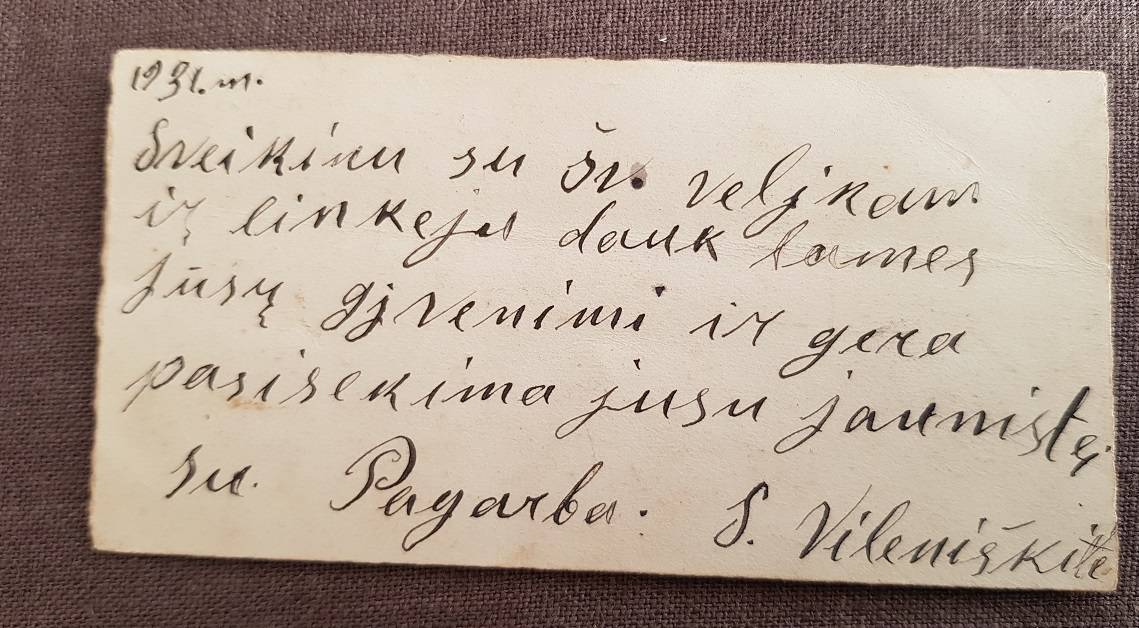 1931.m.
Sveikinu su šv. veljkam
ir linkėju dauk lames
jusų gjvenimi ir gera
pasisekima jusu jaunistej
su. Pagarba. S. Vileniškitė